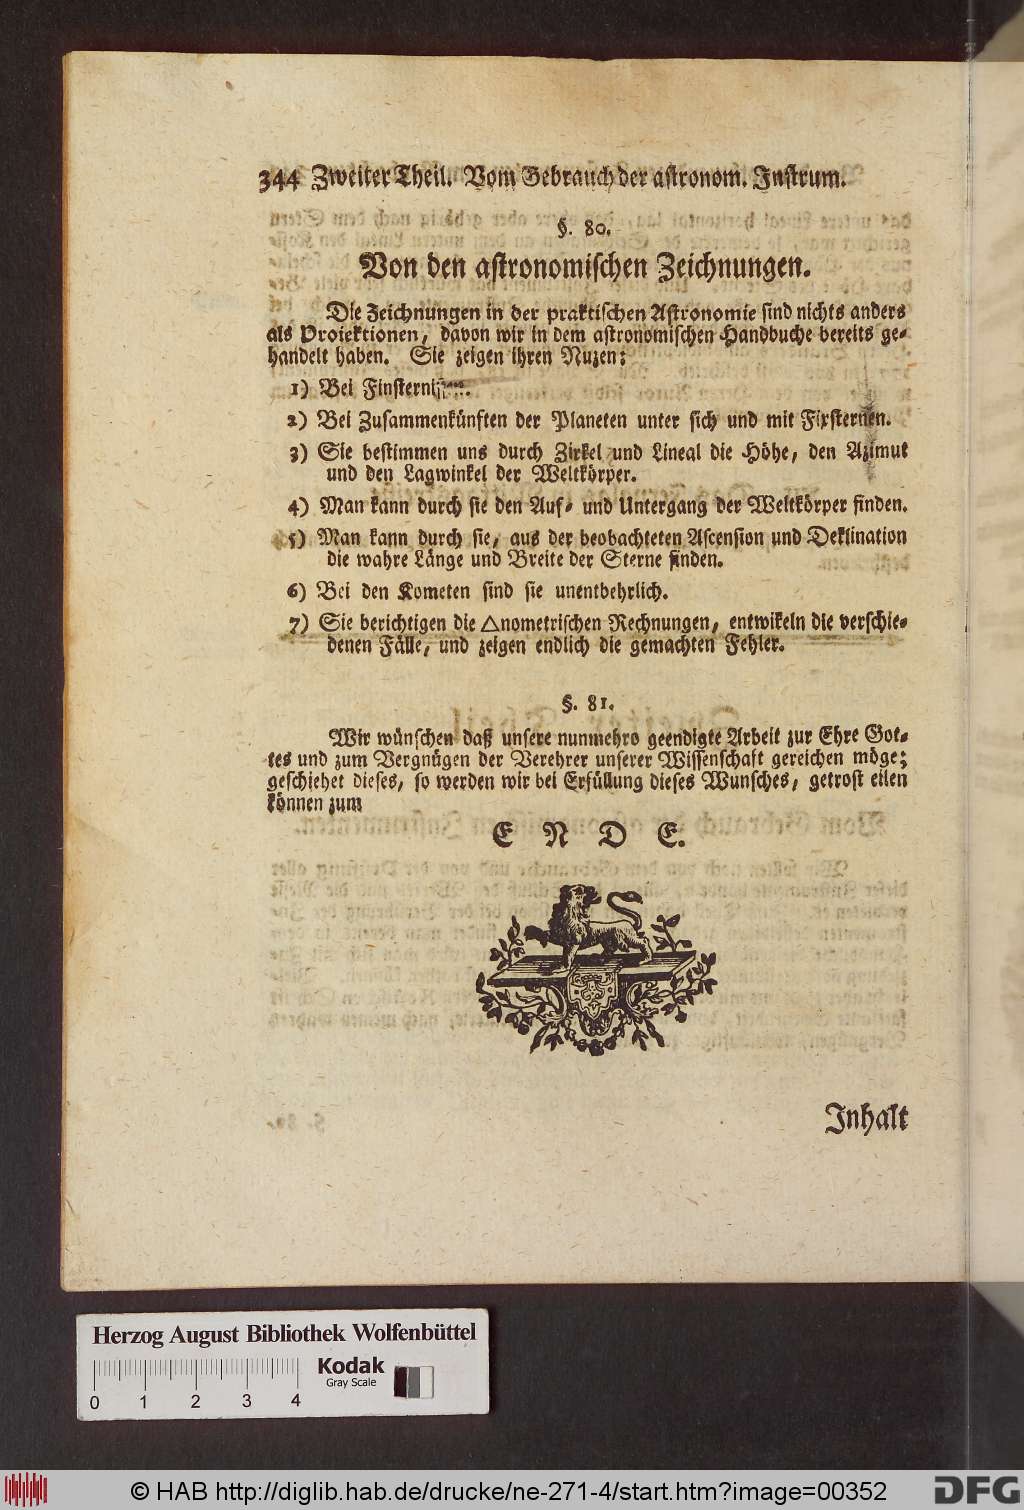 344 Zweiter Theil. Vom Gebrauch der astronom. Instrum.
§. 80.
Von den astronomischen Zeichnungen.
Die Zeichnungen in der praktischen Astronomie sind nichts anders
als Proiektionen, davon wir in dem astronomischen Handbuche bereits ge-
handelt haben. Sie zeigen ihren Nuzen:
1) Bei Finsternissen.
2) Bei Zusammenkünften der Planeten unter sich und mit Fixsternen.
3) Sie bestimmen uns durch Zirkel und Lineal die Höhe, den Azimut
und den Lagwinkel der Weltkörper.
4) Man kann durch sie den Auf- und Untergang der Weltkörper finden.
5) Man kann durch sie, aus der beobachteten Ascension und Deklination
die wahre Länge und Breite der Sterne finden.
6) Bei den Kometen sind sie unentbehrlich.
7) Sie berichtigen die △nometrischen Rechnungen, entwikeln die verschie-
denen Fälle, und zeigen endlich die gemachten Fehler.
§. 81.
Wir wünschen daß unsere nunmehro geendigte Arbeit zur Ehre Got-
tes und zum Vergnügen der Verehrer unserer Wissenschaft gereichen möge;
geschiehet dieses, so werden wir bei Erfüllung dieses Wunsches, getrost eilen
können zum
E N D E.
Inhalt
Herzog August Bibliothek Wolfenbüttel
Kodak
Gray Scale
0 1 2 3 4
© HAB http://diglib.hab.de/drucke/ne-271-4/start.htm?image=00352
DFG